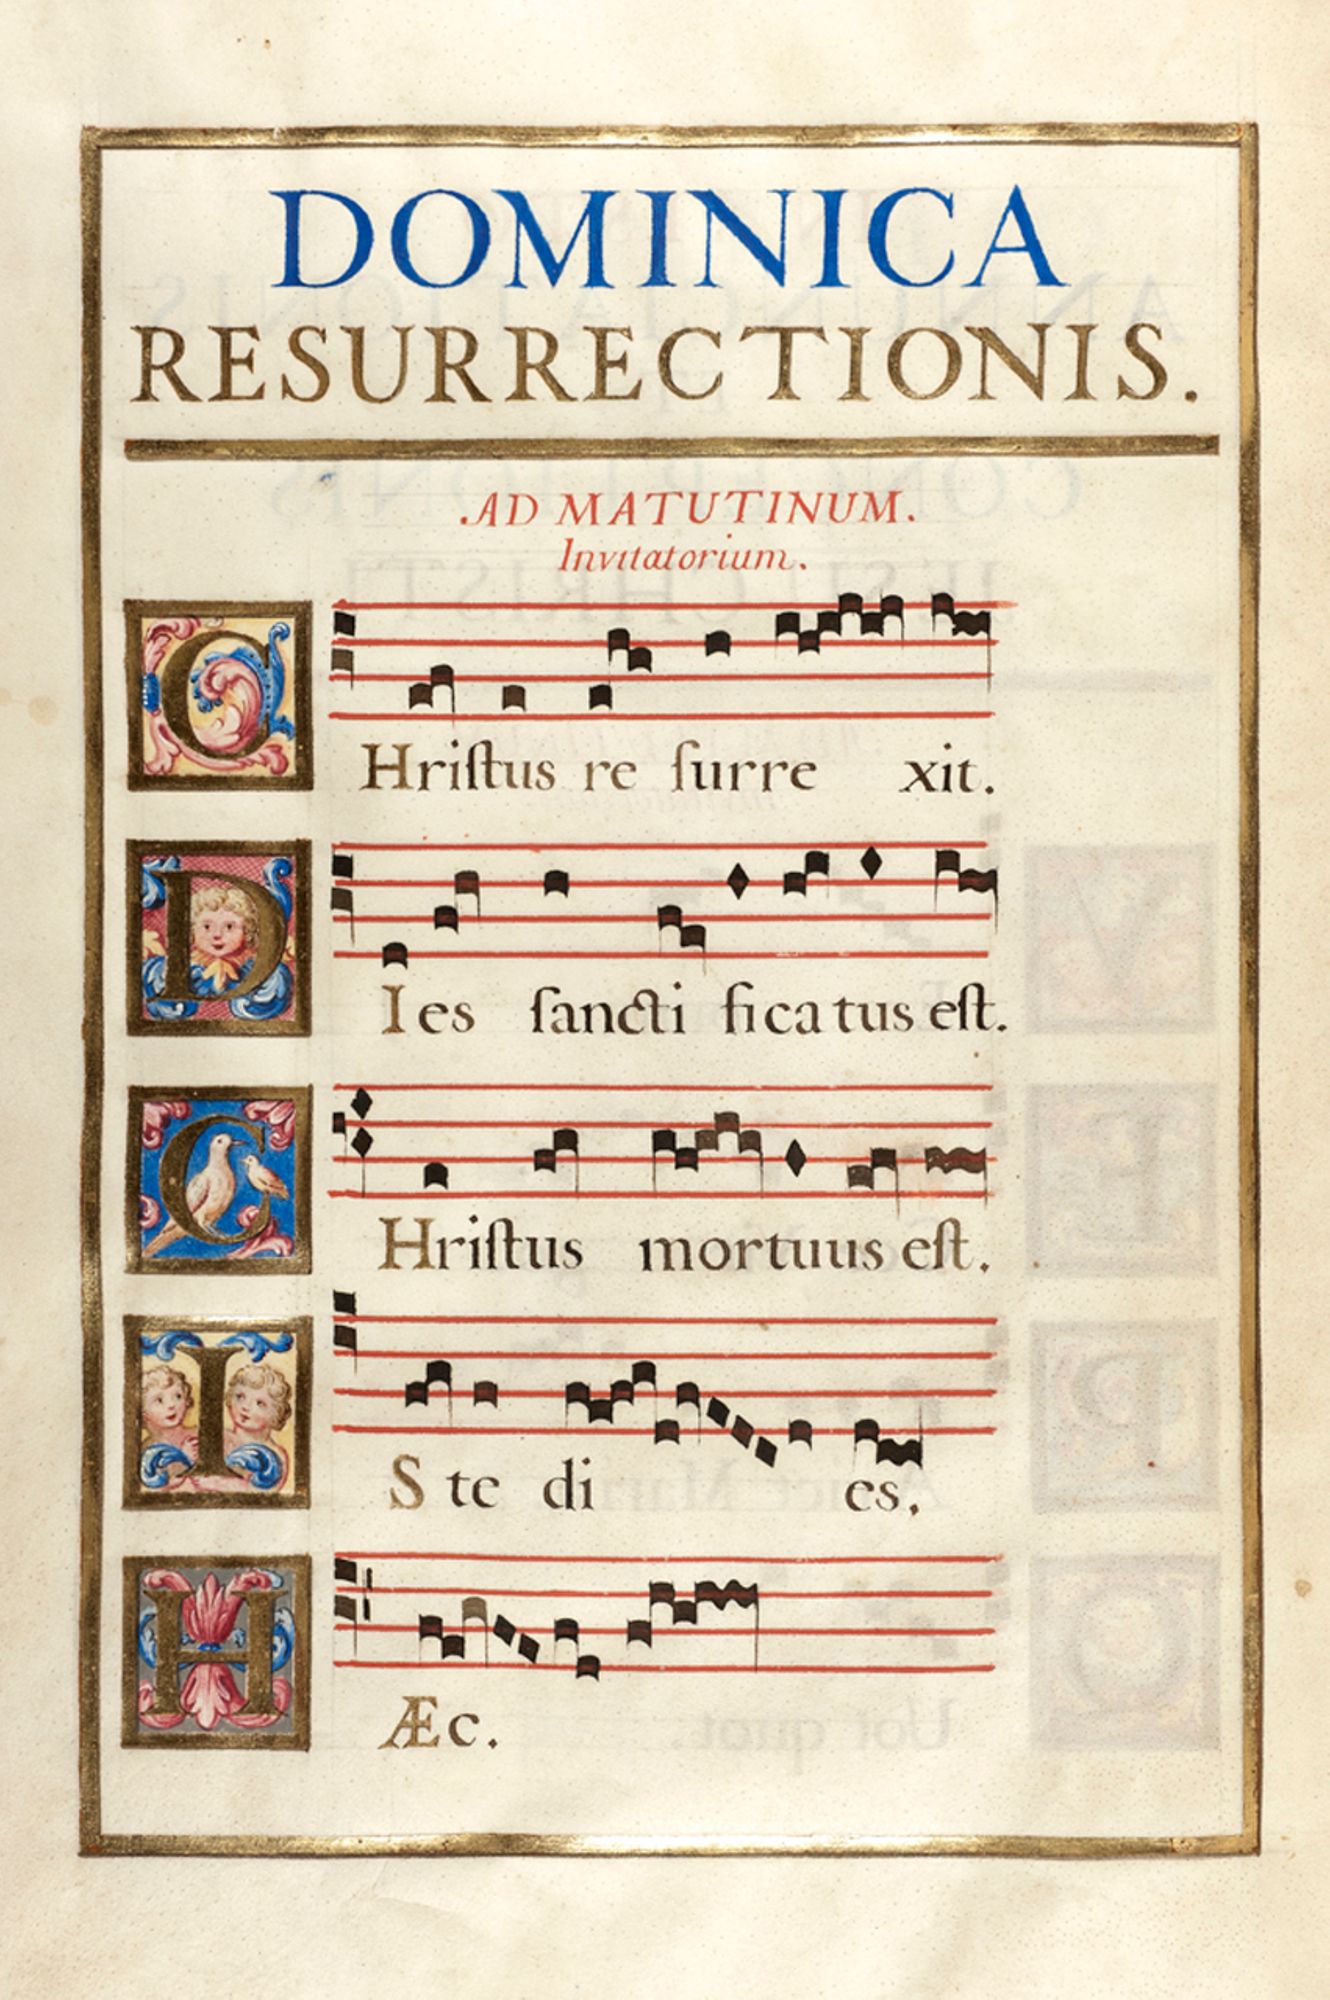 DOMINICA
RESURRECTIONIS.
.AD MATUTINUM.
Invitatorium.
CHriſtus re ſurre xit.
DIes ſancti ficatus eſt.
CHriſtus mortuus eſt.
IS te di es.
HÆc.